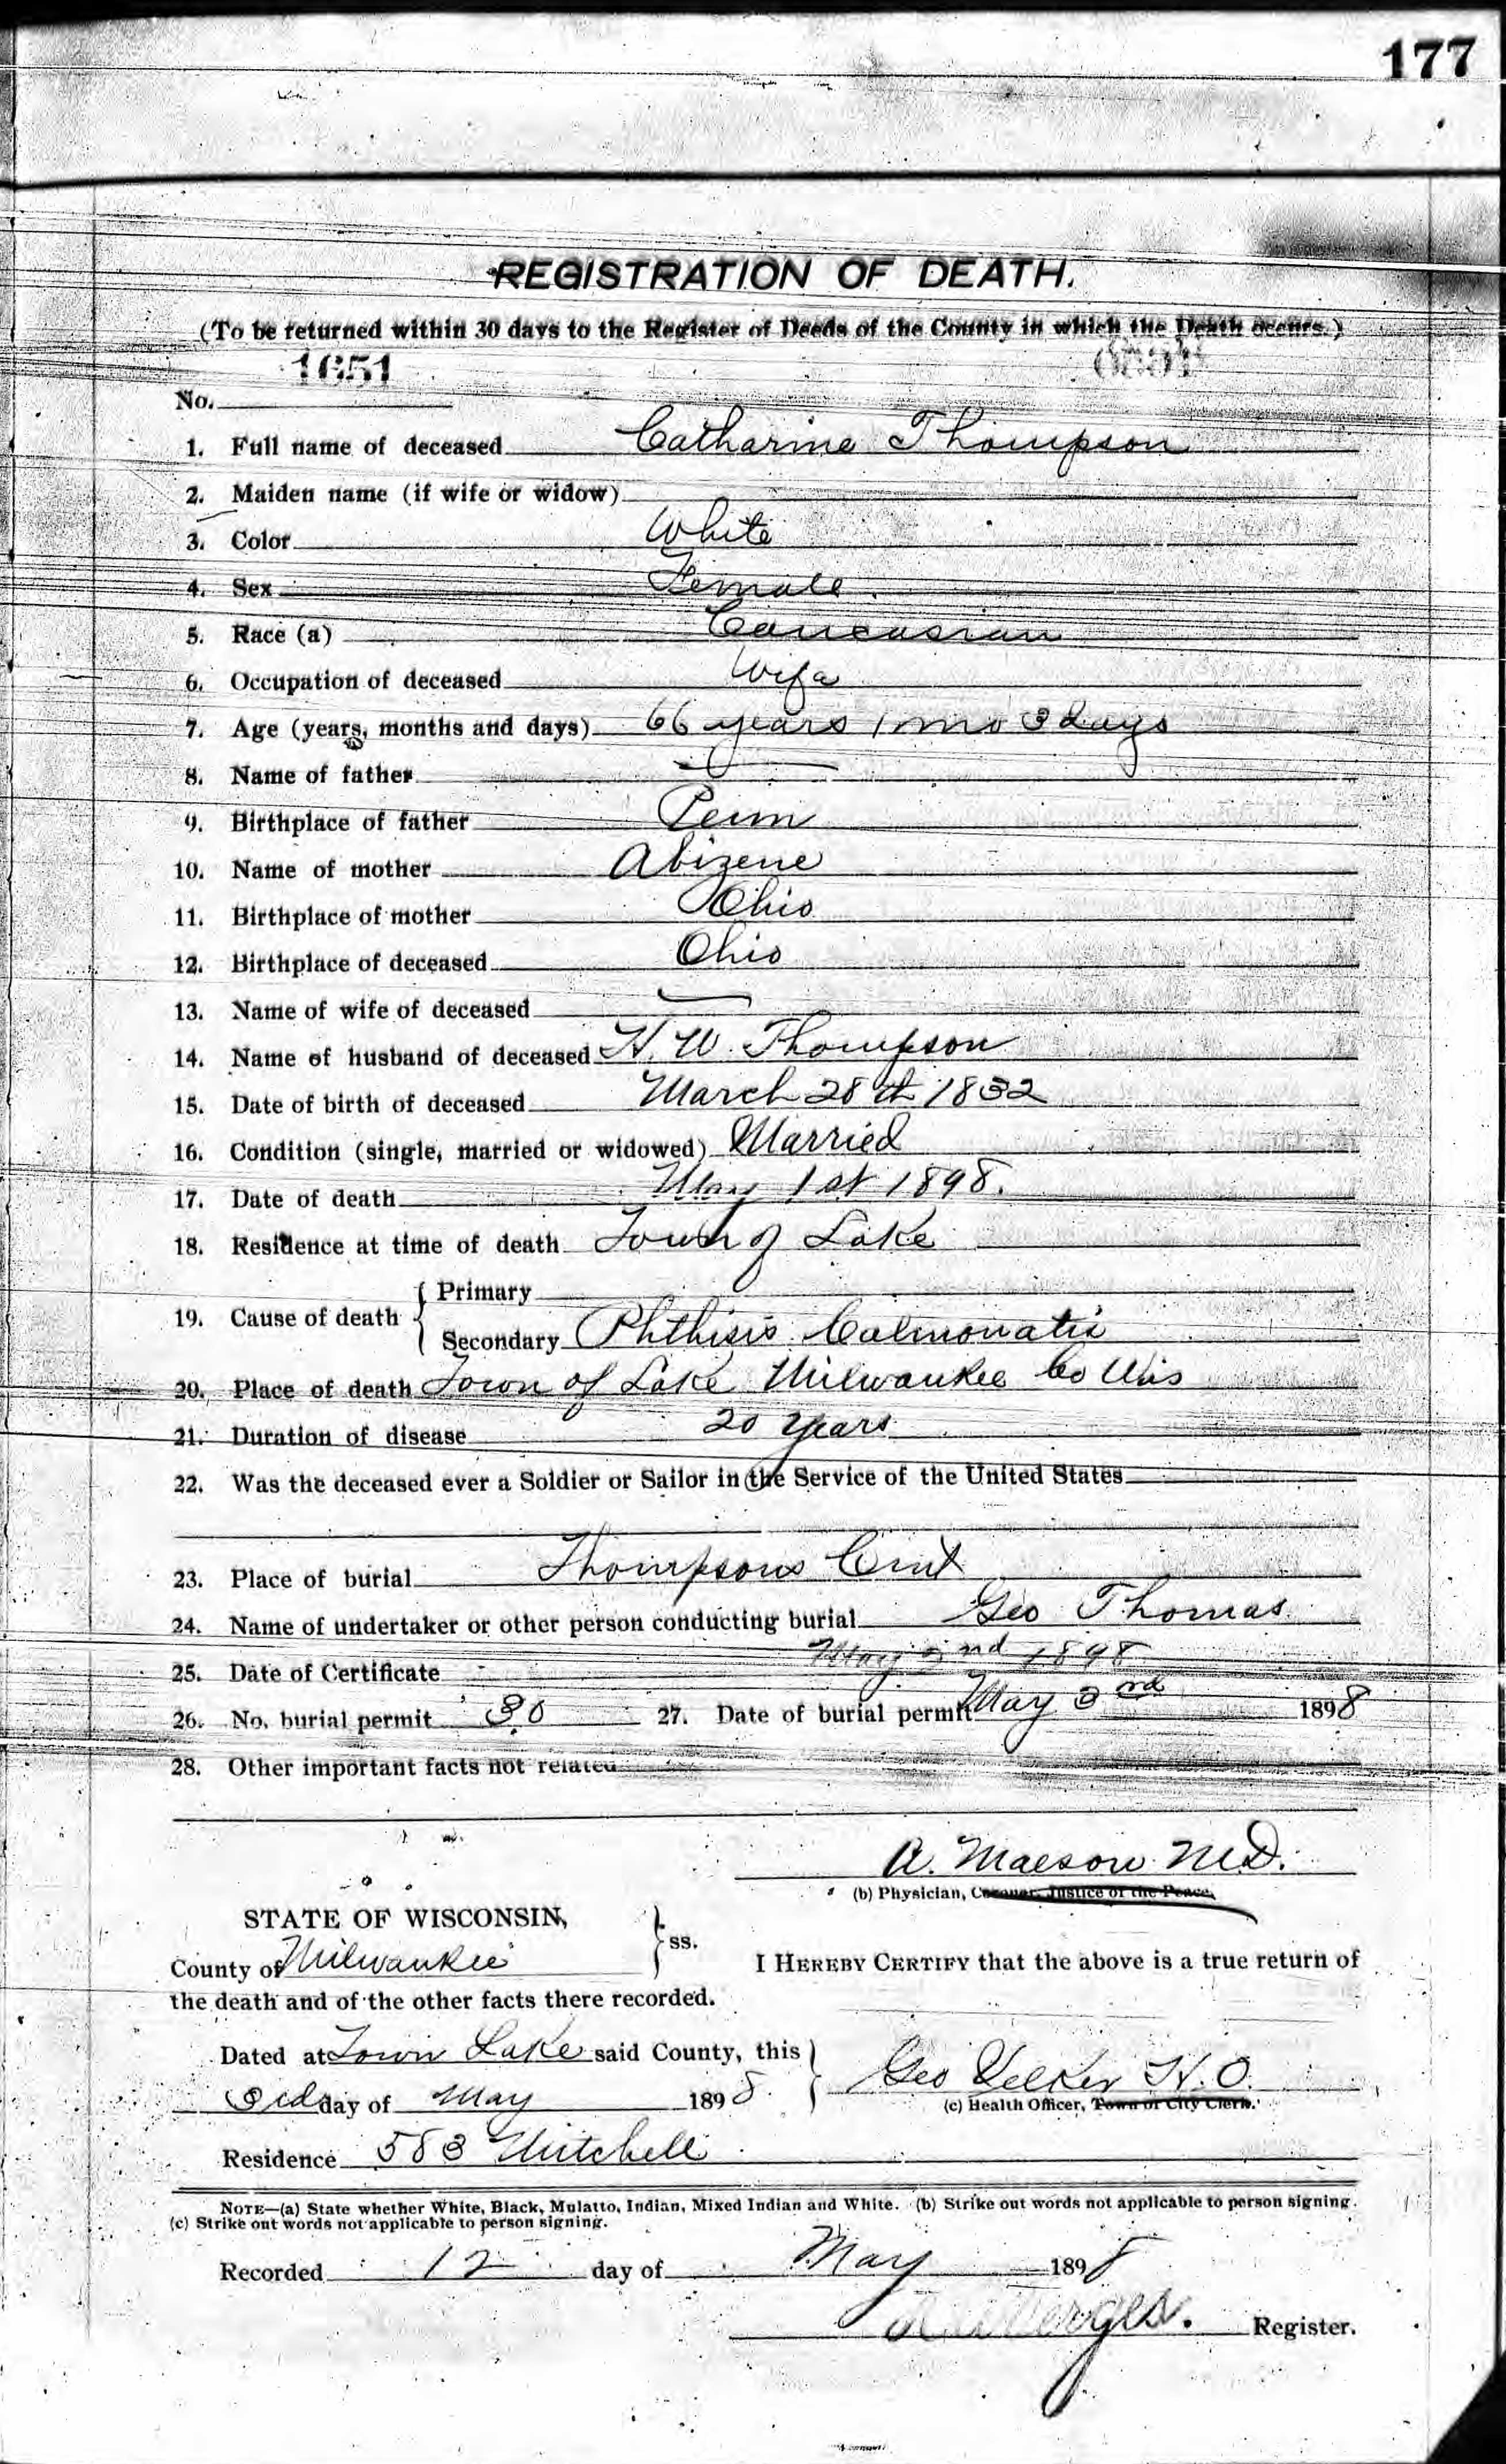 177
REGISTRATION OF DEATH.
(To be returned within 30 days to the Register of Deeds of the County in which the Death occurs.)
1651
No.
1. Full name of deceased Catharine Thompson
2. Maiden name (if wife or widow)
3. Color White
4. Sex Female
5. Race (a) Caucasian
6. Occupation of deceased Wife
7. Age (years, months and days) 66 years 1 mo 3 days
8. Name of father
9. Birthplace of father Penn
10. Name of mother Abizene
11. Birthplace of mother Ohio
12. Birthplace of deceased Ohio
13. Name of wife of deceased
14. Name of husband of deceased H. W. Thompson
15. Date of birth of deceased March 28th 1832
16. Condition (single, married or widowed) Married
17. Date of death May 1st 1898.
18. Residence at time of death Town of Lake
19. Cause of death { Primary
Secondary Phthisis
20. Place of death Town of Lake Milwaukee Co Wis
21. Duration of disease 20 years
22. Was the deceased ever a Soldier or Sailor in the Service of the United States
23. Place of burial Thompsons Cmt
24. Name of undertaker or other person conducting burial Geo Thomas
25. Date of Certificate May 2nd 1898
26. No. burial permit 30 27. Date of burial permit May 3rd 1898
28. Other important facts not related
A. Maesow M.D.
(b) Physician, Coroner, Justice of the Peace,
STATE OF WISCONSIN, } ss.
County of Milwaukee I HEREBY CERTIFY that the above is a true return of
the death and of the other facts there recorded.
Dated at Town Lake said County, this }
3rd day of May 1898. Geo H.O.
(c) Health Officer, Town or City Clerk.
Residence 583 Mitchell
NOTE—(a) State whether White, Black, Mulatto, Indian, Mixed Indian and White. (b) Strike out words not applicable to person signing.
(c) Strike out words not applicable to person signing.
Recorded 12 day of May 1898
Register.